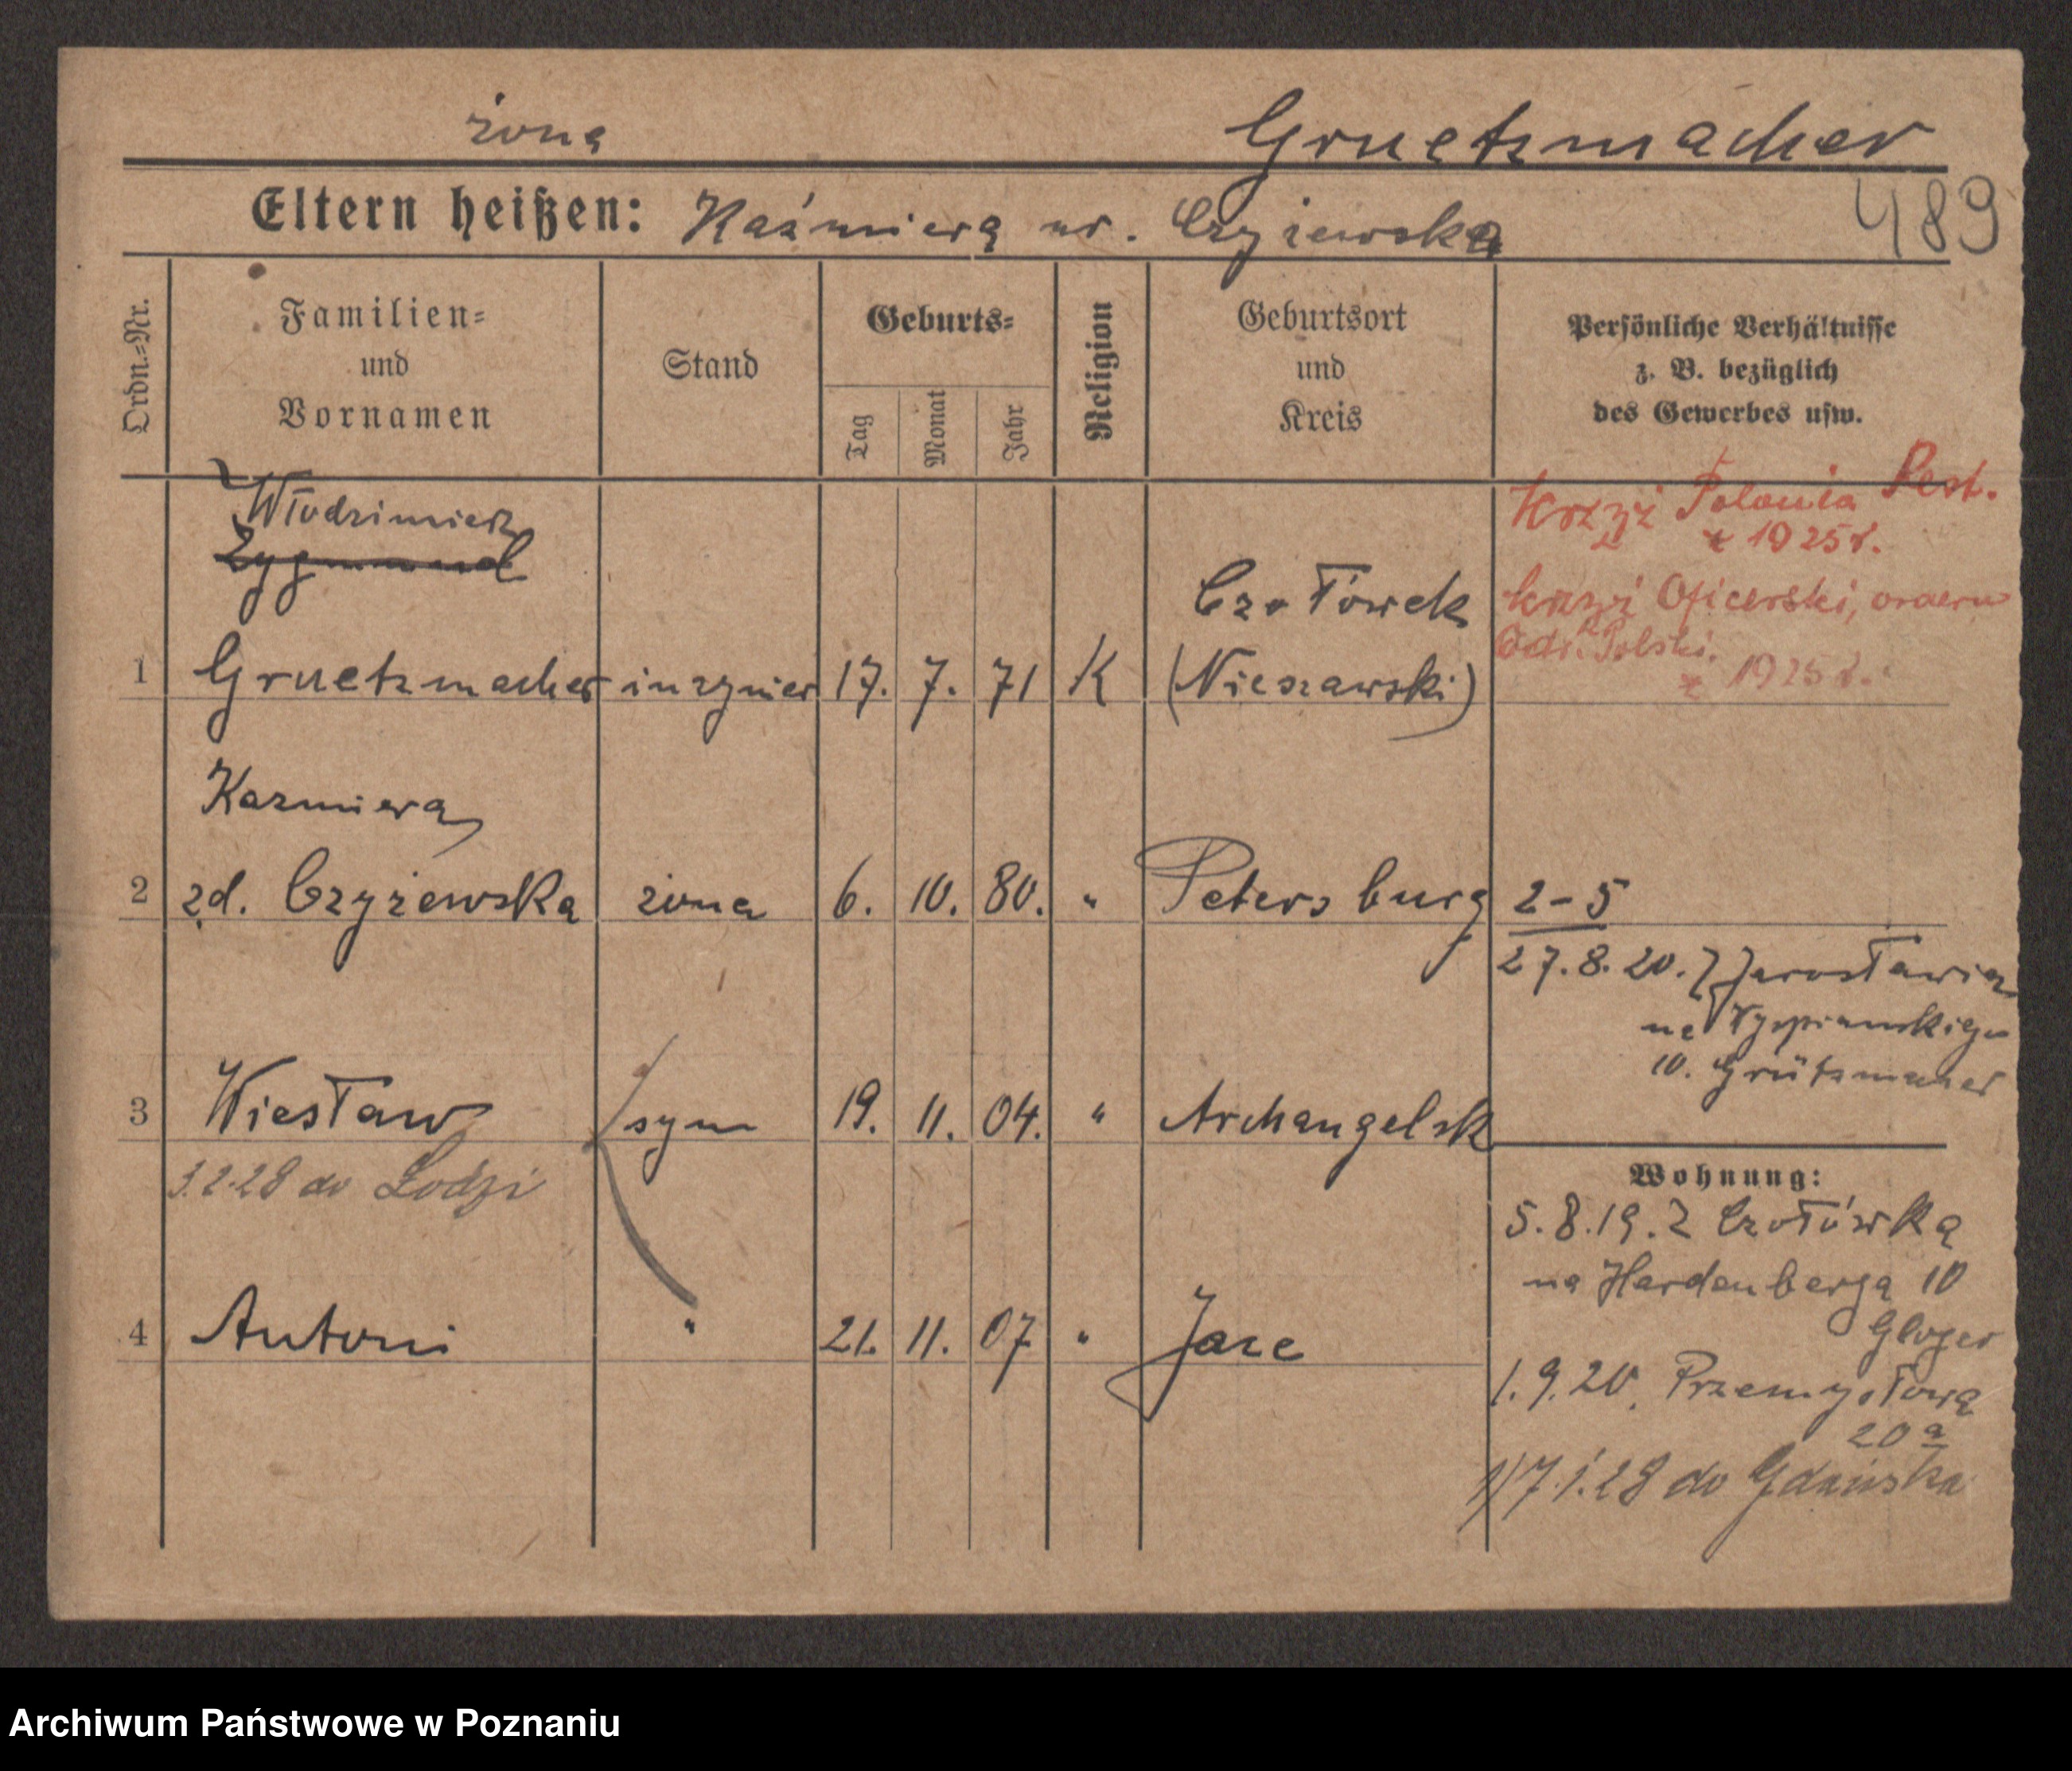 żona Gruetzmacher
Eltern heißen: Kaźmiera ur. Czyżewska 489
Ordn.=Nr. Familien= und Vornamen Stand Geburts= Tag Monat Jahr Religion Geburtsort und Kreis Persönliche Verhältnisse z. B. bezüglich des Gewerbes usw.
Krzyż Polonia Rest.
1925 r.
Włodzimierz
Zygmund
Krzyż Oficerski, orderu
Odr. Polski.
1925 r.
1 Gruetzmacher inżynier 17. 7. 71 K Czołówek
(Nieszawski)
Kazmiera
2 zd. Czyżewska żona 6. 10. 80. " Petersburg
2-5
27.8.20. Z Jarosławia
na Wyspianskiego
10. Grützmacher
3 Wiesław syn 19. 11. 04. " Archangelsk
3.2.28 do Łodzi
4 Antoni " 21. 11. 07 " Jaze
Wohnung:
5.8.19. Z Czołówka
na Hardenberga 10
Gloger
1.9.20. Przemysłowa
20a
1) 7.1.28 do Gdańska
Archiwum Państwowe w Poznaniu